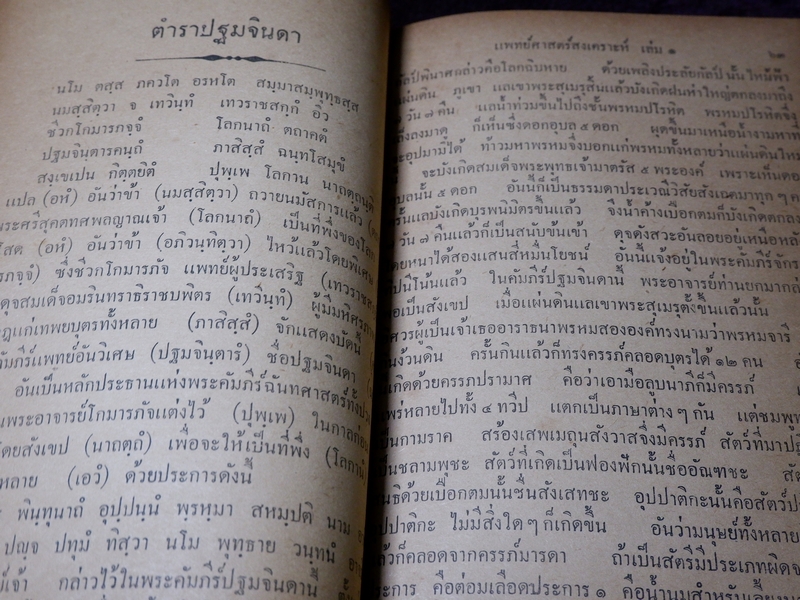 ตำราปฐมจินดา
นโม ตสฺส ภควโต อรหโต สมฺมาสมฺพุทฺธสฺส
นมสฺสิตฺวา จ เทวินฺทํ เทวราชสกฺกํ อิว
ชีวกโกมารภจฺจํ โลกนาถํ ตถาคตํ
ปฐมจินฺตารคนฺถํ ภาสิสฺสํ ฉนฺทโสมุขํ
สงฺเขเปน กิตฺตยิตํ ปุพฺเพ โลกาน นาถตฺถนุติ
แปล (อหํ) อันว่าข้า (นมสฺสิตฺวา) ถวายนมัสการแล้ว
พระศรีสุคตทศพลญาณเจ้า (โลกนาถํ) เป็นที่พึ่งของโลก
โสด (อหํ) อันว่าข้า (อภิวนฺทิตฺวา) ไหว้แล้วโดยพิเศษ
ภจฺจํ) ซึ่งชีวกโกมารภัจ แพทย์ผู้ประเสริฐ (เทวราช
ดุจสมเด็จอมรินทราธิราชบพิตร (เทวินฺทํ) ผู้มีมหิศร
แก่เทพยบุตรทั้งหลาย (ภาสิสฺสํ) จักแสดงบัดนี้
คัมภีร์แพทย์อันวิเศษ (ปฐมจินฺตารํ) ชื่อปฐมจินดา
อันเป็นหลักประธานแห่งพระคัมภีร์ฉันทศาสตร์ทั้งปวง
พระอาจารย์โกมารภัจแต่งไว้ (ปุพฺเพ) ในกาลก่อน
โดยสังเขป (นาถตฺถํ) เพื่อจะให้เป็นที่พึ่ง (โลกานํ)
หลาย (เอวํ) ด้วยประการดังนี้
พินฺทุนาถํ อุปฺปนฺนํ พฺรหฺมา สหมฺปติ นาม
ปญฺจ ปทุมํ ทิสฺวา นโม พุทฺธาย วนฺทนํ
กล่าวไว้ในพระคัมภีร์ปฐมจินดานี้
แพทย์ศาสตร์สงเคราะห์ เล่ม ๑
กัลป์พินาศกล่าวคือโลกฉิบหาย ด้วยเพลิงประลัยกัลป์นั้นไหม้ฟ้า
แผ่นดิน ภูเขา แลเขาพระสุเมรุสิ้นแล้วบังเกิดฝนห่าใหญ่ตกลงมาถึง
วัน ๗ คืน แลน้ำท่วมขึ้นไปถึงชั้นพรหมปโรหิต พรหมปโรหิตจึง
เล็งลงมาด ก็เห็นซึ่งดอกอุบล ๕ ดอก ผุดขึ้นมาเหนือน้ำงามหา
จะอุปมามิได้ ท้าวมหาพรหมจึงบอกแก่พรหมทั้งหลายว่าแผ่นดินใหม่
จะบังเกิดสมเด็จพระพุทธเจ้ามาตรัส ๕ พระองค์ เพราะเห็นดอก
บลนั้น ๕ ดอก อันนี้ก็เป็นธรรมดาประเวณีวิสัยสังเฉดมาทุก ๆ
ครั้นแลบังเกิดบุรพนิมิตรขึ้นแล้ว จึงน้ำค้างเปือกตมก็บังเกิดตกลง
๗ วัน ๗ คืนแล้วก็เป็นสนับข้นเข้า ดุจดังสวะอันลอยอยู่เหนือหลัง
โดยหนาได้สองแสนสี่หมื่นโยชน์ อันนี้แจ้งอยู่ในพระคัมภีร์จักร
ปนีโน้นแล้ว ในคัมภีร์ปฐมจินดานี้ พระอาจารย์ท่านยกมากล่าว
เป็นสังเขป เมื่อแผ่นดินแลเขาพระสุเมรุตั้งขึ้นแล้วนั้น
ศวรผู้เป็นเจ้าเธออาราธนาพรหมสององค์ทรงนามว่าพรหมจารี
ง้วนดิน ครั้นกินแล้วก็ทรงครรภ์คลอดบุตรได้ ๑๒ คน
เกิดด้วยครรภปรามาศ คือว่าเอามือลูบนาภีก็มีครรภ์
แพร่หลายไปทั้ง ๔ ทวีป แตกเป็นภาษาต่าง ๆ กัน แต่ชมพู
เป็นกามราค สร้องเสพเมถุนสังวาสจึงมีครรภ์ สัตว์ที่มาปฏิ
เป็นชลามพุชะ สัตว์ที่เกิดเป็นฟองฟักนั้นชื่ออัณฑชะ
ธิด้วยเปือกตมนั้นชื่นสังเสทชะ อุปปาติกะนั้นคือสัตว์
ปปาติกะ ไม่มีสิ่งใด ๆ ก็เกิดขึ้น อันว่ามนุษย์ทั้งหลาย
แล้วก็คลอดจากครรภ์มารดา ถ้าเป็นสัตรีมีประเภทผิด
ประการ คือต่อมเลือดประการ ๑ คือน้ำนมสำหรับเลี้ยง